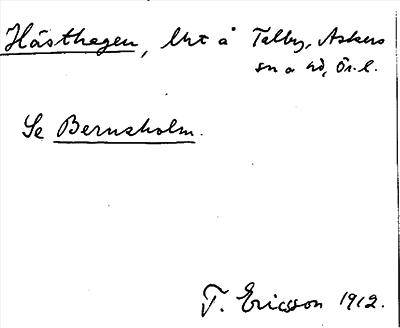 Hästhagen, lht å Talby, Askers
sn o hd, Ör. l.
Se Bernsholm.
T. Ericsson 1912.